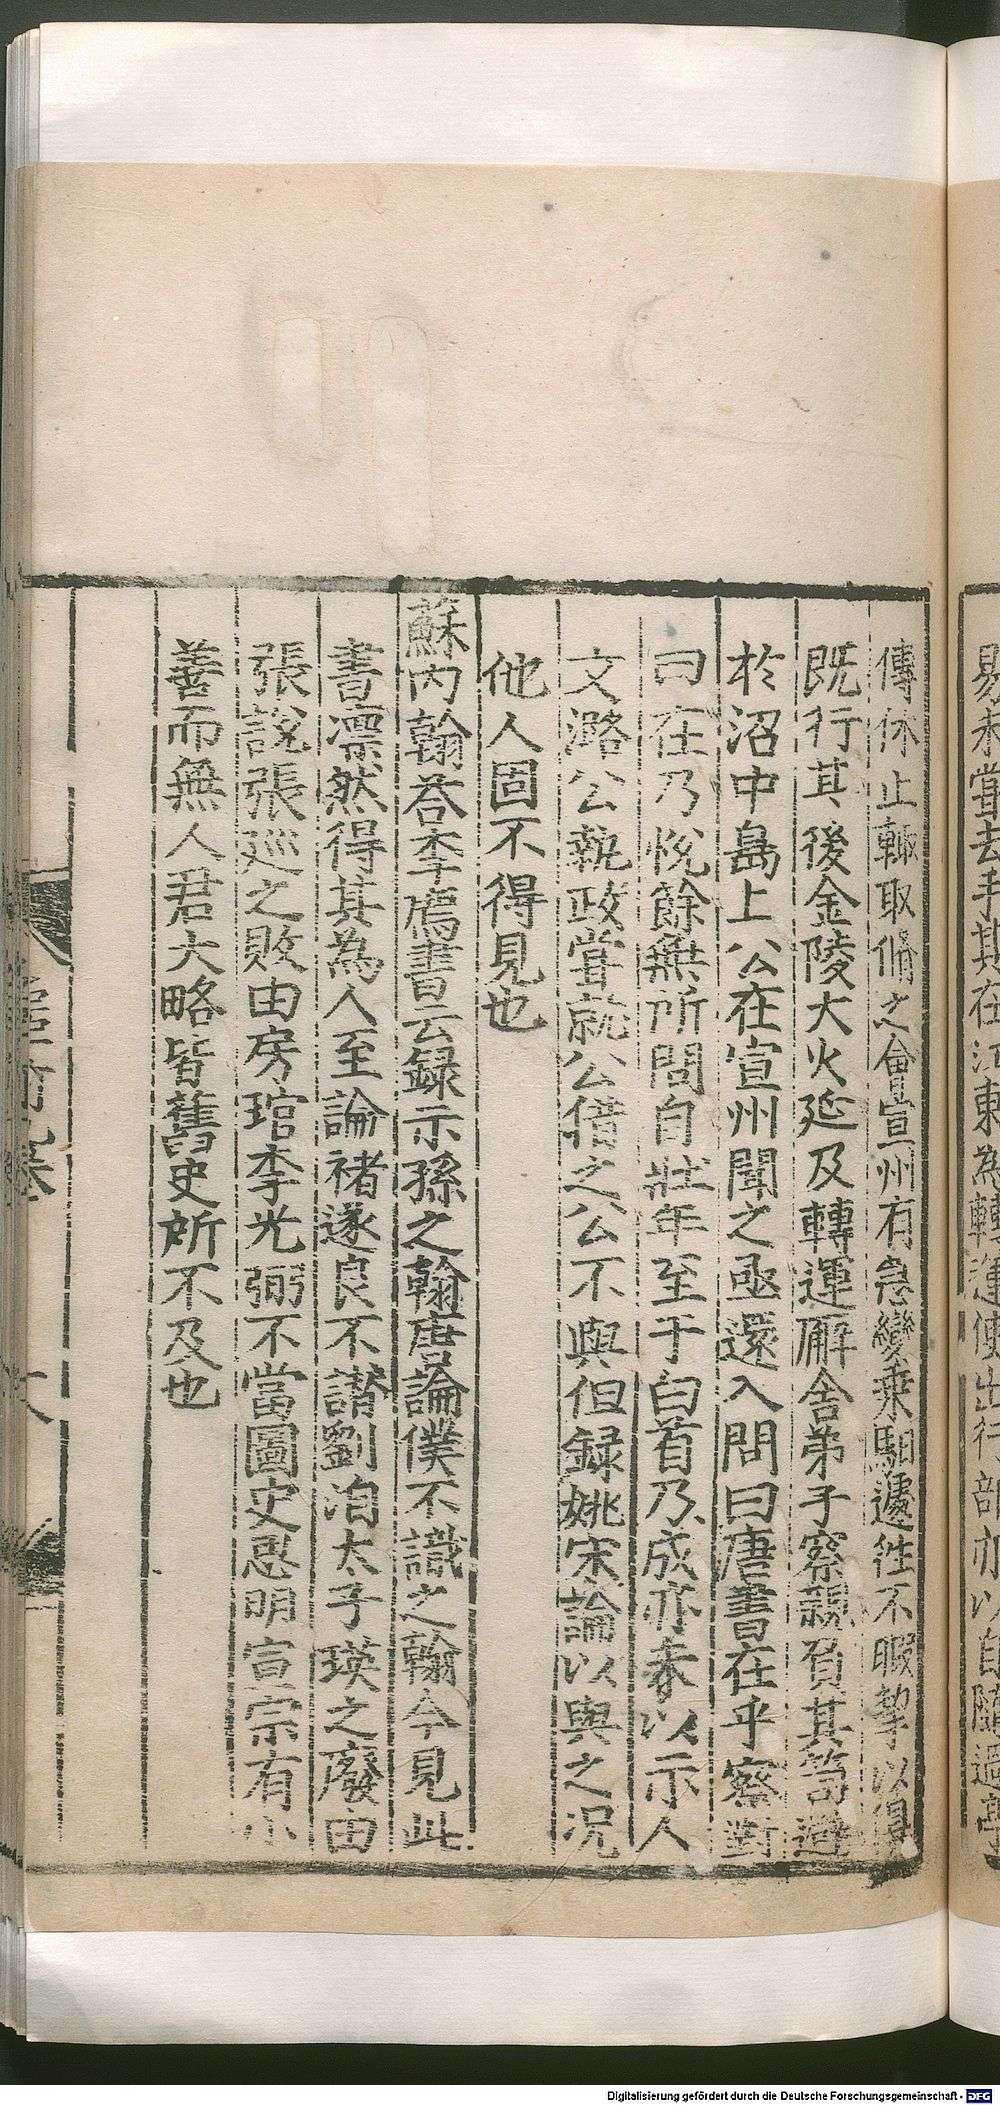 易未嘗去手其在江東為轉運使出行部亦以自隨過亭
傳休止輙取脩之會宣州有急變乘馹遽徃不暇挈以俱
既行其後金陵大火延及轉運廨舍弟子察親負其笥避
於沼中島上公在宣州聞之亟還入問曰唐書在乎察對
曰在乃悅餘無所問自壯年至于白首乃成亦未以示人
文潞公執政嘗就公借之公不與但録姚宋論以與之況
他人固不得見也
蘇內翰荅李廌書云録示孫之翰唐論僕不識之翰今見此
書凛然得其為人至論褚遂良不譛劉洎太子瑛之廢由
張說張廵之敗由房琯李光弼不當圖史思明宣宗有小
善而無人君大略皆舊史所不及也
Digitalisierung gefördert durch die Deutsche Forschungsgemeinschaft - DFG